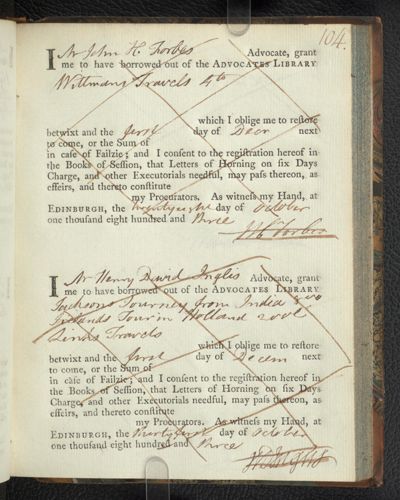 104.
I Mr John H. Forbes Advocate, grant
me to have borrowed out of the ADVOCATES LIBRARY
Wittmans Travels 4to
which I oblige me to restore
betwixt and the first day of Decr next
to come, or the Sum of
in case of Failzie; and I consent to the registration hereof in
the Books of Session, that Letters of Horning on six Days
Charge, and other Executorials needful, may pass thereon, as
effeirs, and thereto constitute
my Procurators. As witness my Hand, at
EDINBURGH, the day of October
one thousand eight hundred and three
J H Forbes
I Mr Henry David Inglis Advocate, grant
me to have borrowed out of the ADVOCATES LIBRARY
Jacksons Journey from India 8vo
Tour in Holland 2 vols
Links Travels
which I oblige me to restore
betwixt and the first day of Decem next
to come, or the Sum of
in case of Failzie; and I consent to the registration hereof in
the Books of Session, that Letters of Horning on six Days
Charge, and other Executorials needful, may pass thereon, as
effeirs, and thereto constitute
my Procurators. As witness my Hand, at
EDINBURGH, the thirty first day of October
one thousand eight hundred and three